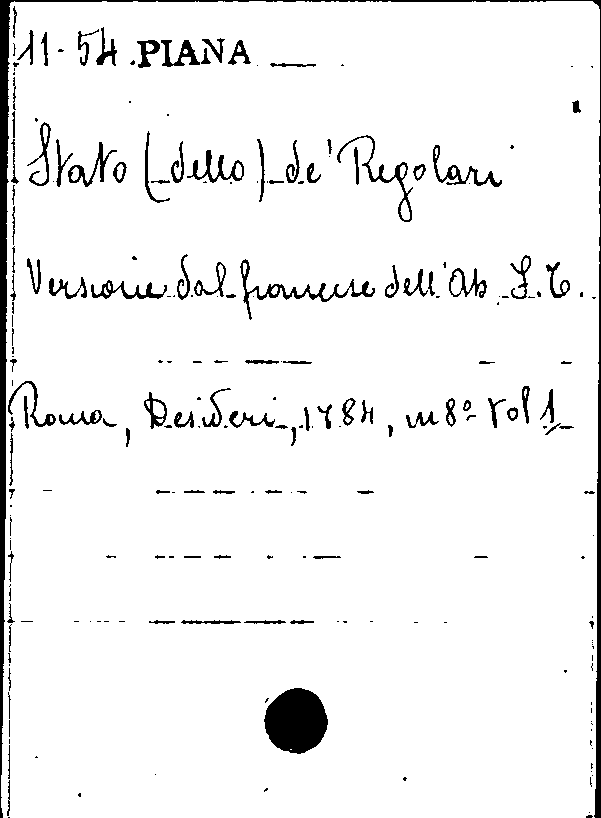 11-54 .PIANA
Stato (dello) de' Regolari
Versione dal francese dell'Ab. F. T.
Roma, Desideri, 1784, in 8º Vol 1